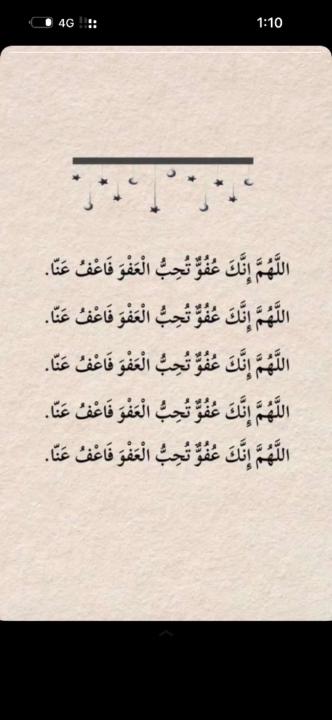 4G
1:10
اللَّهُمَّ إِنَّكَ عُفُوٌّ تُحِبُّ الْعَفْوَ فَاعْفُ عَنَّا.
اللَّهُمَّ إِنَّكَ عُفُوٌّ تُحِبُّ الْعَفْوَ فَاعْفُ عَنَّا.
اللَّهُمَّ إِنَّكَ عُفُوٌّ تُحِبُّ الْعَفْوَ فَاعْفُ عَنَّا.
اللَّهُمَّ إِنَّكَ عُفُوٌّ تُحِبُّ الْعَفْوَ فَاعْفُ عَنَّا.
اللَّهُمَّ إِنَّكَ عُفُوٌّ تُحِبُّ الْعَفْوَ فَاعْفُ عَنَّا.